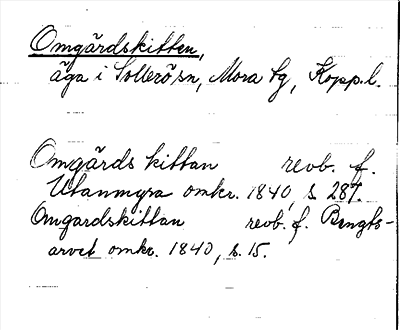 Omgärdskitten,
äga i Sollerö sn, Mora tg, Kopp.l.
Omgärds kittan revb. f.
Utanmyra omkr. 1840, s. 287.
Omgardskittan revb. f. Bengts-
arvet omkr. 1840, s. 15.